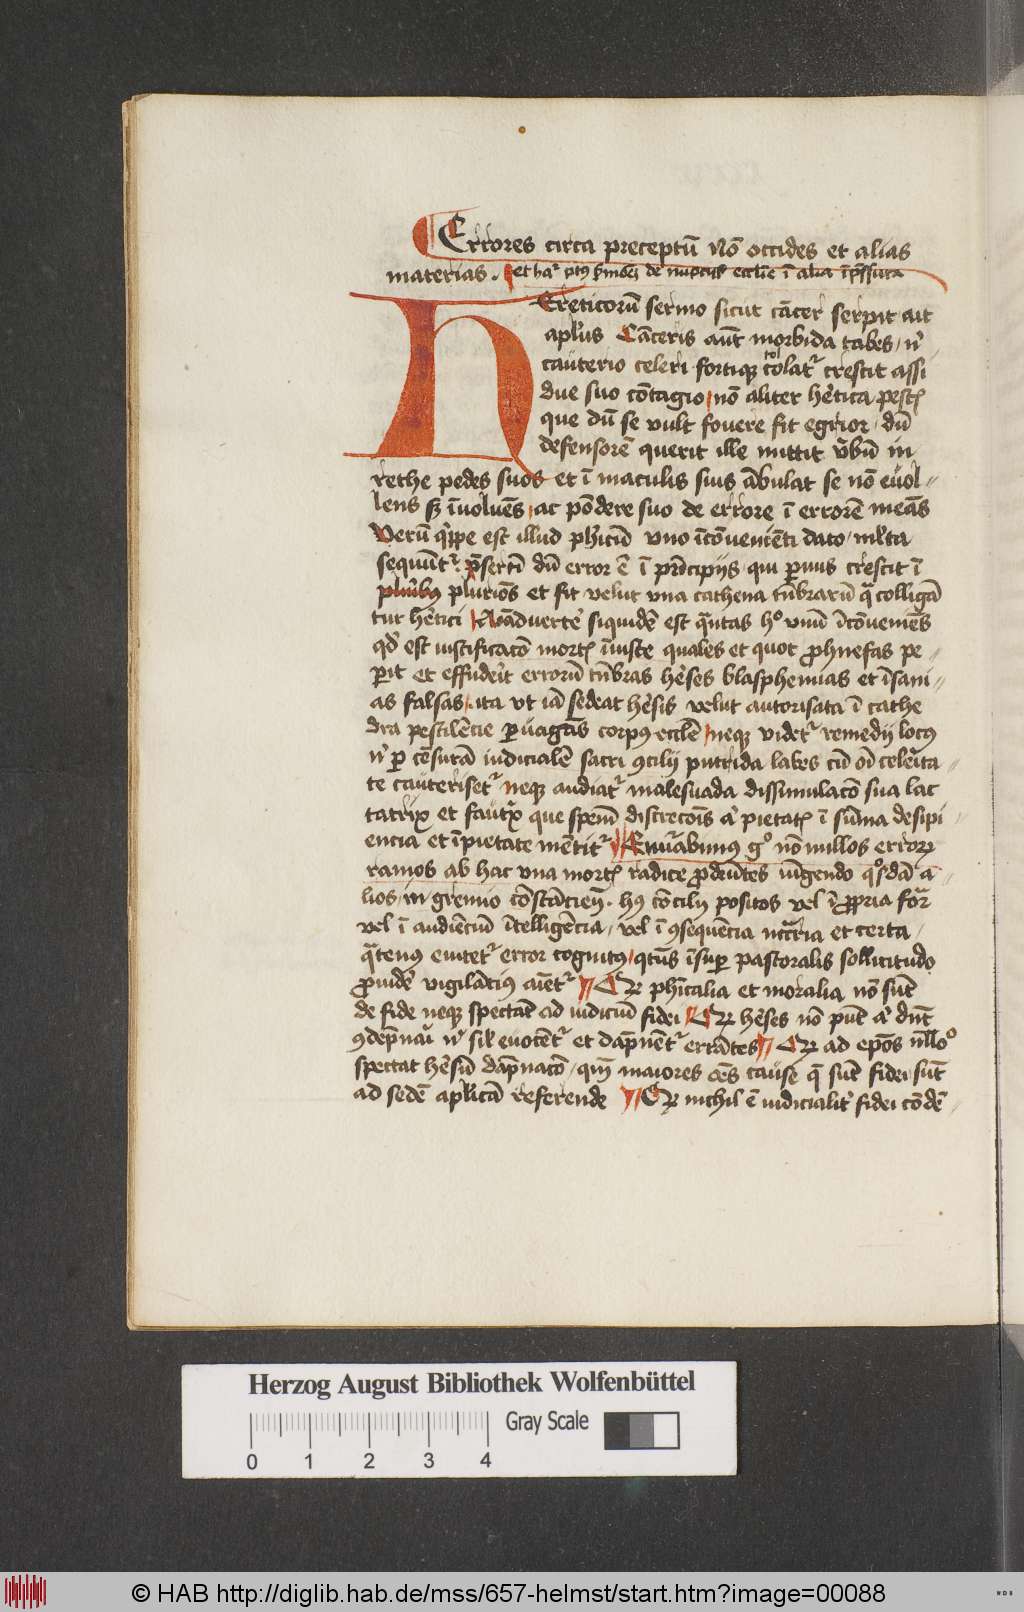 Errores circa preceptū Nō occides et alias
materias . et
Hereticorū sermo sicut cācer serpit ait
apl'us Cāceris aūt morbida tabes n'
cauterio celeri fortiqꝫ tolatr̄ crescit assi
due suo cōtagio nō aliter hetica pest
que dū se vult fovere fit egrior dū
defensorē querit ille mittit v̄bū in
rethe pedes suos et ī maculis suis ābulat se nō evol
lens sꝫ īvoluēs ac pōdere suo de errore ī errorē meās
Verū q'ppe est illud ph'icū vno īcōueniēti dato ml'ta
sequūt' p̄sertī dū error ē ī pr̄icipiis qui paruus crescit ī
pluribus pluriōs et fit velut vna cathena tn̄brarū qa colligā
tur hetici Aīaduerte' siquidē est quātas hº vnū īcōueniēs
qd' est iustificatō mort īiuste quales et quot prophnefas pe
perit et effuderit errorū tn̄bras heses blasphemias et īsani
as falsas ita vt iā sedeat hesis velut autorisata ī cathe
dra pestilēcie peruagās corpꝰ ecclē neqꝫ videt' remedii locus
n' per cēsurā iudicialē sacri ꝯcilii putrida labes cū oī celerita
te cauteriset' neqꝫ audiat' malesuada dissimulacō sua lac
tatrix et fautrix que spem̄ discrecōis a' pietat ī sūma desipi
encia et īpietate mētit' Enu'abimus gº nōnullos error
ramos ab hac vna mort radice prodeūtes iūgendo qºsdā a
lios in gremio cōstācien̄ . hꝰ cōcilii positos vel ī propria for'
vel ī audiēciū ītelligēcia vel ī ꝯsequēcia nccria et certa
qatenꝰ euitet' error cognitꝰ qtūs īsup pastoralis sollicitudo
prouide' vigilātius aiet' Qꝛ phīcalia et moralia nō sūt
de fide neqꝫ spectāt ad iudiciū fidei Qꝛ heses nō pūt a' dn̄t
ꝯdēpnāi n' sil' euocēt' et dāpnēt' errātes Qꝛ ad ep̄os nllº
spectat hesū dāpnacō qm̄ maiores oēs cause q̄ sūt fidei sūt
ad sedē aplicā referende Qꝛ nichil ē iudicialit' fidei cōdē
Herzog August Bibliothek Wolfenbüttel
Gray Scale
0 1 2 3 4
© HAB http://diglib.hab.de/mss/657-helmst/start.htm?image=00088